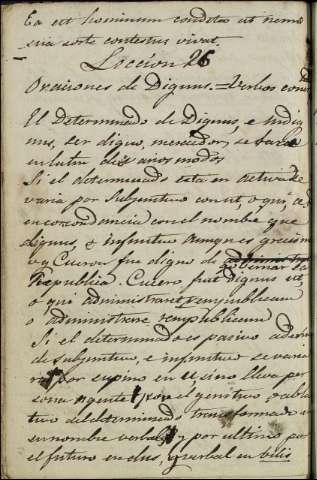 Ea est hominum conditio ut nemo
sua sorte contestus vivat.
Leccion 26
Oraciones de Dignus. = Verbos con
El Determinado de Dignus, e Indig
nus, ser digno, merecedor, se hace
en latin de seis modos
Si el determinado esta en activa se
varia por Subjuntivo con ut, o qui,
en concordancia con el nombre que
dignus, e infinitivo aunque es grecismo
v g Ciceron fue digno de gobernar la
Republica. Cicero, fuit dignus ut,
o qui administraret rempublicam
o administrare rempublicam
Si el determinado es pasivo ademas
de subjuntivo, e infinitivo se varia
por supino en u, si no lleva per
sona agente, por el genitivo o abla
tivo del determinado transformado
en nombre verbal, y por ultimo por
el futuro en dus, y verbal en bilis